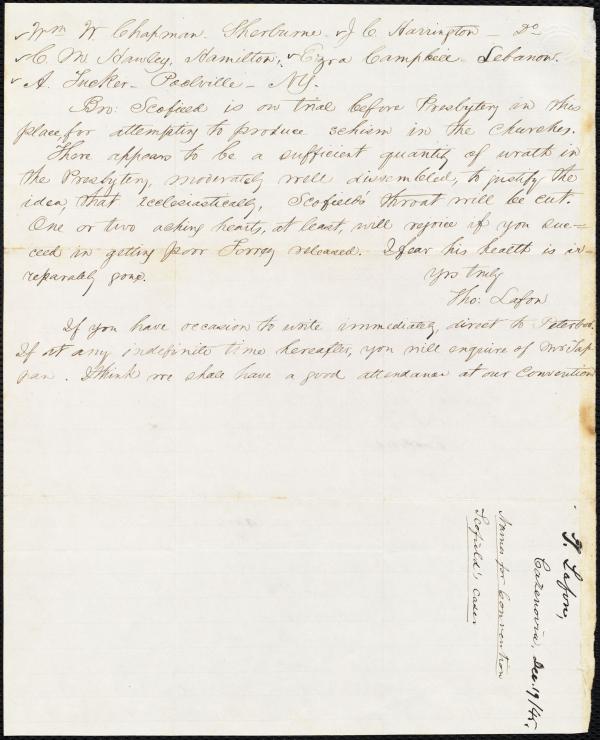 Wm W Chapman. Sherburne. J C. Harrington - Do
C. M. Hawley, Hamilton, Ezra Campbell Lebanon.
A. Tucker - Poolville - NY.
Bro: Scofield is on trial before Presbytery in this
place, for attempting to produce schism in the churches.
There appears to be a sufficient quantity of wrath in
the Presbytery, moderately well dissembled, to justify the
idea, that ecclesiastically, Scofield's throat will be cut.
One or two aching hearts, at least, will rejoice if you suc-
ceed in getting poor Torrey released. I fear his health is ir-
reparably gone.
Yrs truly
Tho: Lafon
If you have occasion to write immediately, direct to Peterboro.
If at any indefinite time hereafter, you will enquire of Mr Tap
pan. I think we shall have a good attendance at our Convention
T. Lafon,
Cazenovia, Dec. 19/45,
Names for Convention
Scofield's case.